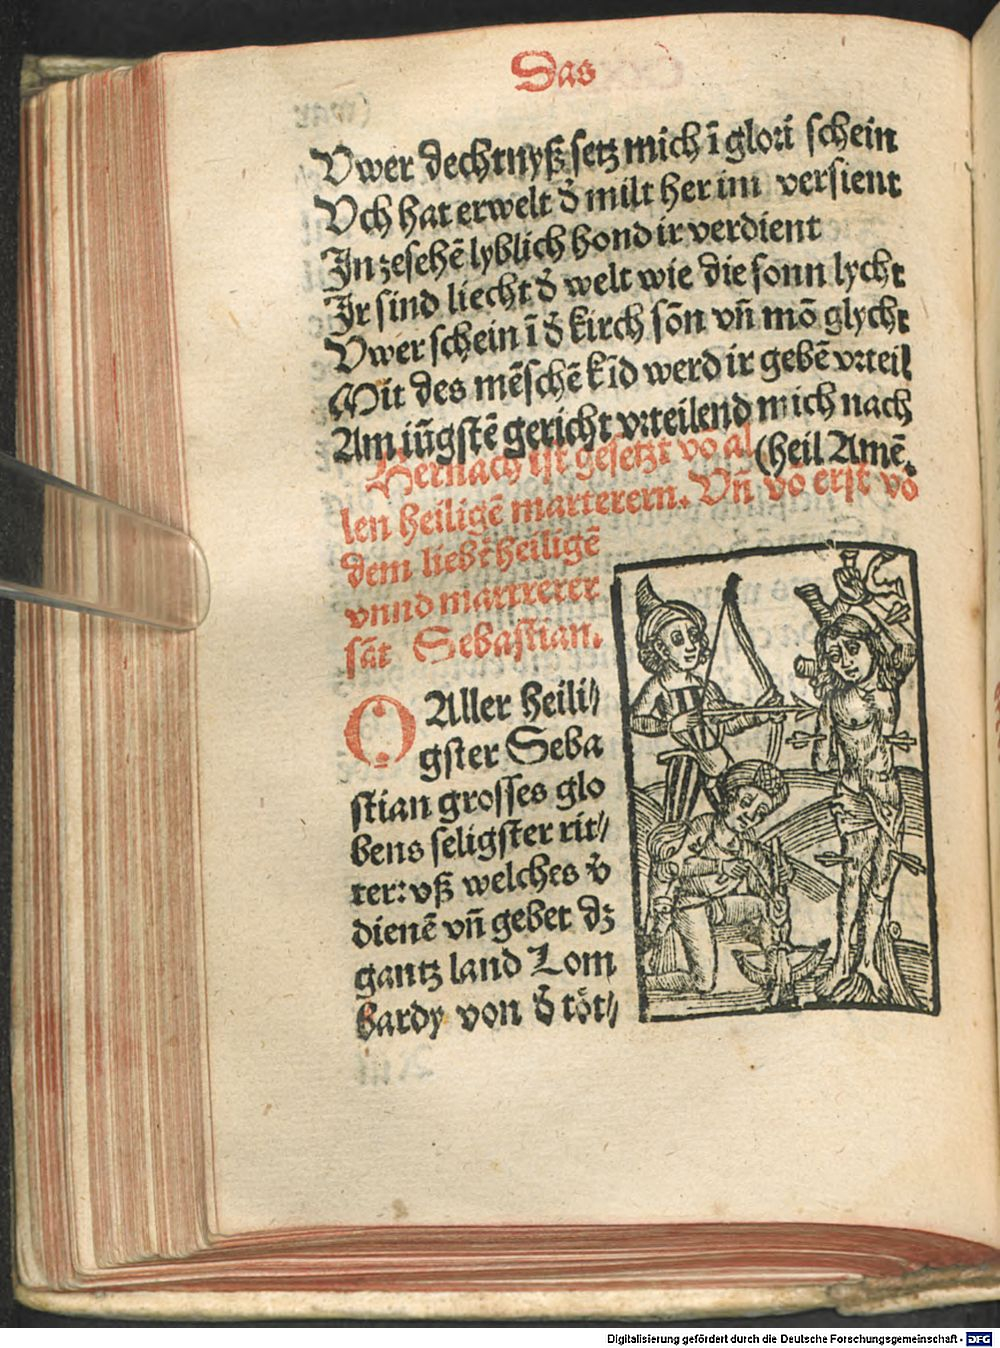 Das
Vwer dechtnyß setz mich ī glori schein
Vch hat erwelt d̄ milt her im versient
In zesehē lyblich hond ir verdient
Ir sind liecht d̄ welt wie die sonn lycht
Vwer schein ī d̄ kirch sōn vn̄ mō glycht
Mit des mēschē kīd werd ir gebē vrteil
Am iūgstē gericht vrteilend mich nach
(heil Amē.
Hernach ist gesetzt vō al
len heiligē marterern. Vn̄ vō erst vō
dem liebē heiligē
vnnd martrerer
sāt Sebastian.
O Aller heili⸗
gster Seba
stian grosses glo
bens seligster rit⸗
ter: vß welches v̄
dienē vn̄ gebet dz
gantz land Lom
bardy von d̄ töt⸗
Digitalisierung gefördert durch die Deutsche Forschungsgemeinschaft - DFG